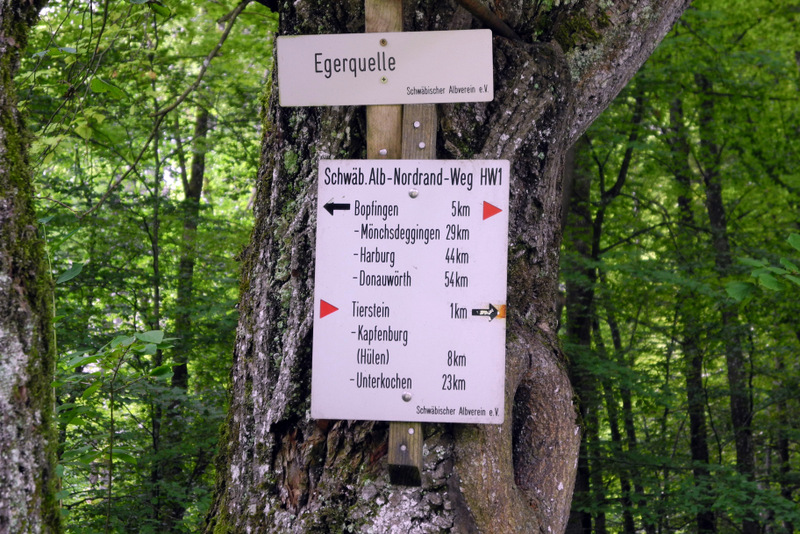 Egerquelle
Schwäbischer Albverein e.V.
Schwäb.Alb-Nordrand-Weg HW1
Bopfingen 5km
-Mönchsdeggingen 29km
-Harburg 44km
-Donauwörth 54km
Tierstein 1km
-Kapfenburg
(Hülen) 8km
-Unterkochen 23km
Schwäbischer Albverein e.V.